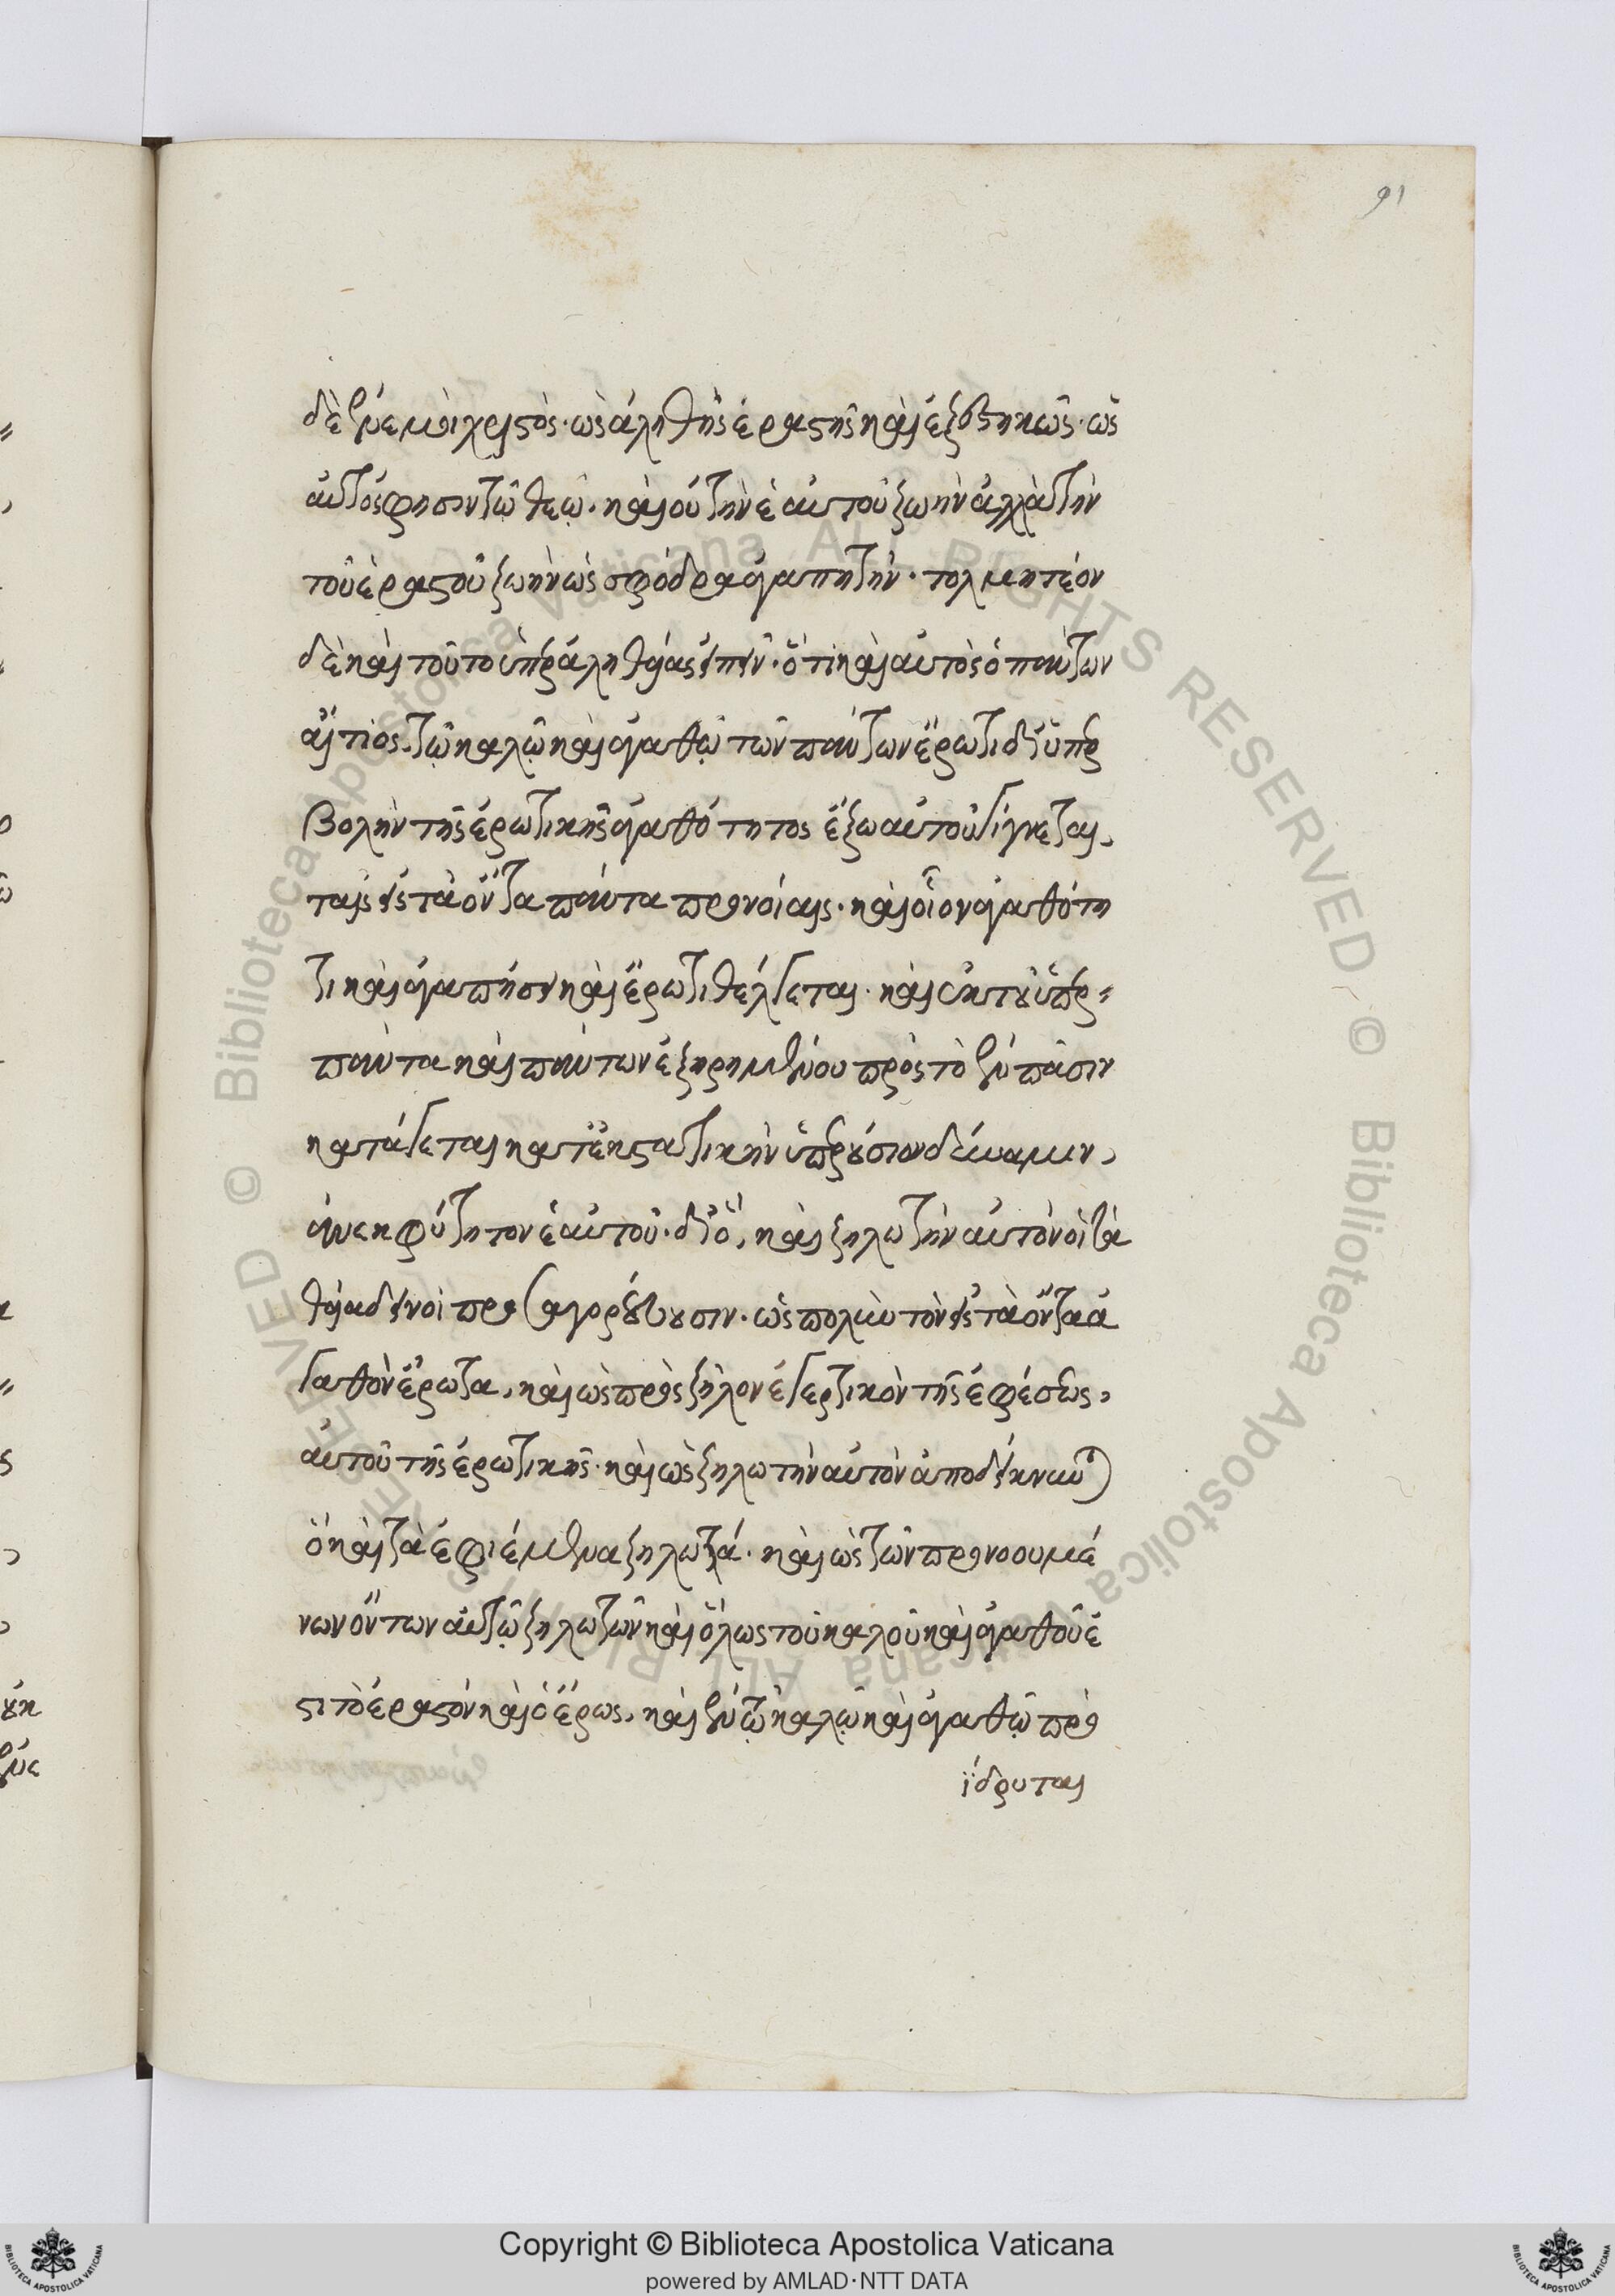 91
δὲ ἐν ἐμοὶ χριστός· ὡς ἀληθὴς ἐραστὴς καὶ ἐξεστηκὼς· ὡς
αὐτός φησιν τῷ θεῷ. καὶ οὐ τὴν ἑαυτοῦ ζωὴν ἀλλὰ τὴν
τοῦ ἐραστοῦ ζωὴν ὡς σφόδρα ἀγαπητήν· τολμητέον
δὲ καὶ τοῦτο ὑπὲρ ἀληθείας εἰπεῖν· ὅτι καὶ αὐτὸς ὁ πάντων
αἴτιος. τῷ καλῷ καὶ ἀγαθῷ τῶν πάντων ἔρωτι δι' ὑπερ
βολὴν τῆς ἐρωτικῆς ἀγαθότητος ἔξω αὑτοῦ γίγνεται,
ταῖς εἰς τὰ ὄντα πάντα προνοίαις· καὶ οἷον ἀγαθότη
τι καὶ ἀγαπήσει καὶ ἔρωτι θέλγεται· καὶ ἐκ τοῦ ὑπερ
πάντα καὶ πάντων ἐξῃρημένου πρὸς τὸ ἐν πᾶσιν
κατάγεται κατ' ἐκστατικὴν ὑπερούσιον δύναμιν,
ἀνεκφοίτητον ἑαυτοῦ· διό, καὶ ζηλωτὴν αὐτὸν οἱ τὰ
θεῖα δεινοὶ προσαγορεύουσιν· ὡς πολὺν τὸν εἰς τὰ ὄντα ἀ
γαθὸν ἔρωτα, καὶ ὡς πρὸς ζῆλον ἐγερτικὸν τῆς ἐφέσεως,
αὐτοῦ τῆς ἐρωτικῆς· καὶ ὡς ζηλωτὴν αὐτὸν ἀποδεικνύντα
ᾧ καὶ τὰ ἐφιέμενα ζηλωτά· καὶ ὡς τῶν προνοουμέ
νων ὄντων αὐτῷ ζηλωτῶν καὶ ὅλως τοῦ καλοῦ καὶ ἀγαθοῦ ἐ
στι τὸ ἐραστὸν καὶ ὁ ἔρως, καὶ ἐν τῷ καλῷ καὶ ἀγαθῷ προ
ΐδρυται